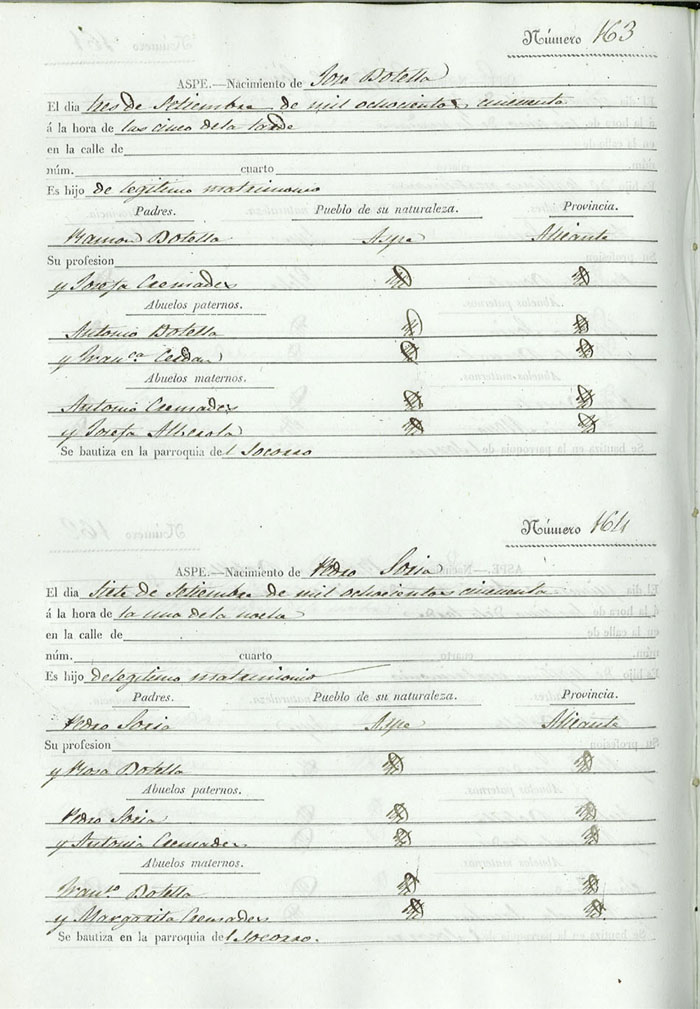 Número 163
ASPE.—Nacimiento de Jose Botella
El dia tres de Setiembre de mil ochocientos cincuenta
á la hora de las cinco de la tarde
en la calle de
núm. cuarto
Es hijo de legitimo matrimonio
Padres. Pueblo de su naturaleza. Provincia.
Ramon Botella Aspe Alicante
Su profesion
y Josefa Cremades
Abuelos paternos.
Antonio Botella
y Franca Cerdan
Abuelos maternos.
Antonio Cremades
y Josefa Alberola
Se bautiza en la parroquia del Socorro
Número 164
ASPE.—Nacimiento de Pedro Soria
El dia siete de Setiembre de mil ochocientos cincuenta
á la hora de la una de la noche
en la calle de
núm. cuarto
Es hijo de legitimo matrimonio
Padres. Pueblo de su naturaleza. Provincia.
Pedro Soria Aspe Alicante
Su profesion
y Rosa Botella
Abuelos paternos.
Pedro Soria
y Antonia Cremades
Abuelos maternos.
Franco Botella
y Margarita Cremades
Se bautiza en la parroquia del Socorro.